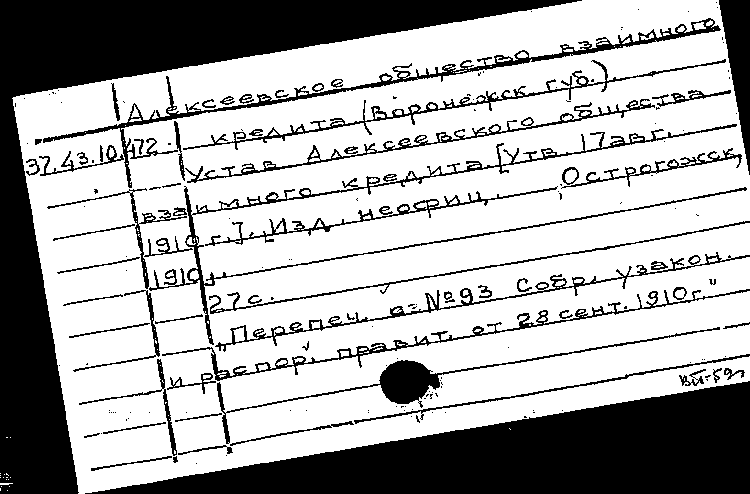 Алексеевское общество взаимного
кредита (Воронежск. губ.).
37.43.10.472. Устав Алексеевского общества
взаимного кредита. [Утв. 17 авг.
1910 г.]. Изд. неофиц. Острогожск,
1910.
27 с.
„Перепеч. из №93 Собр. узакон.
и распор. правит. от 28 сент. 1910 г."